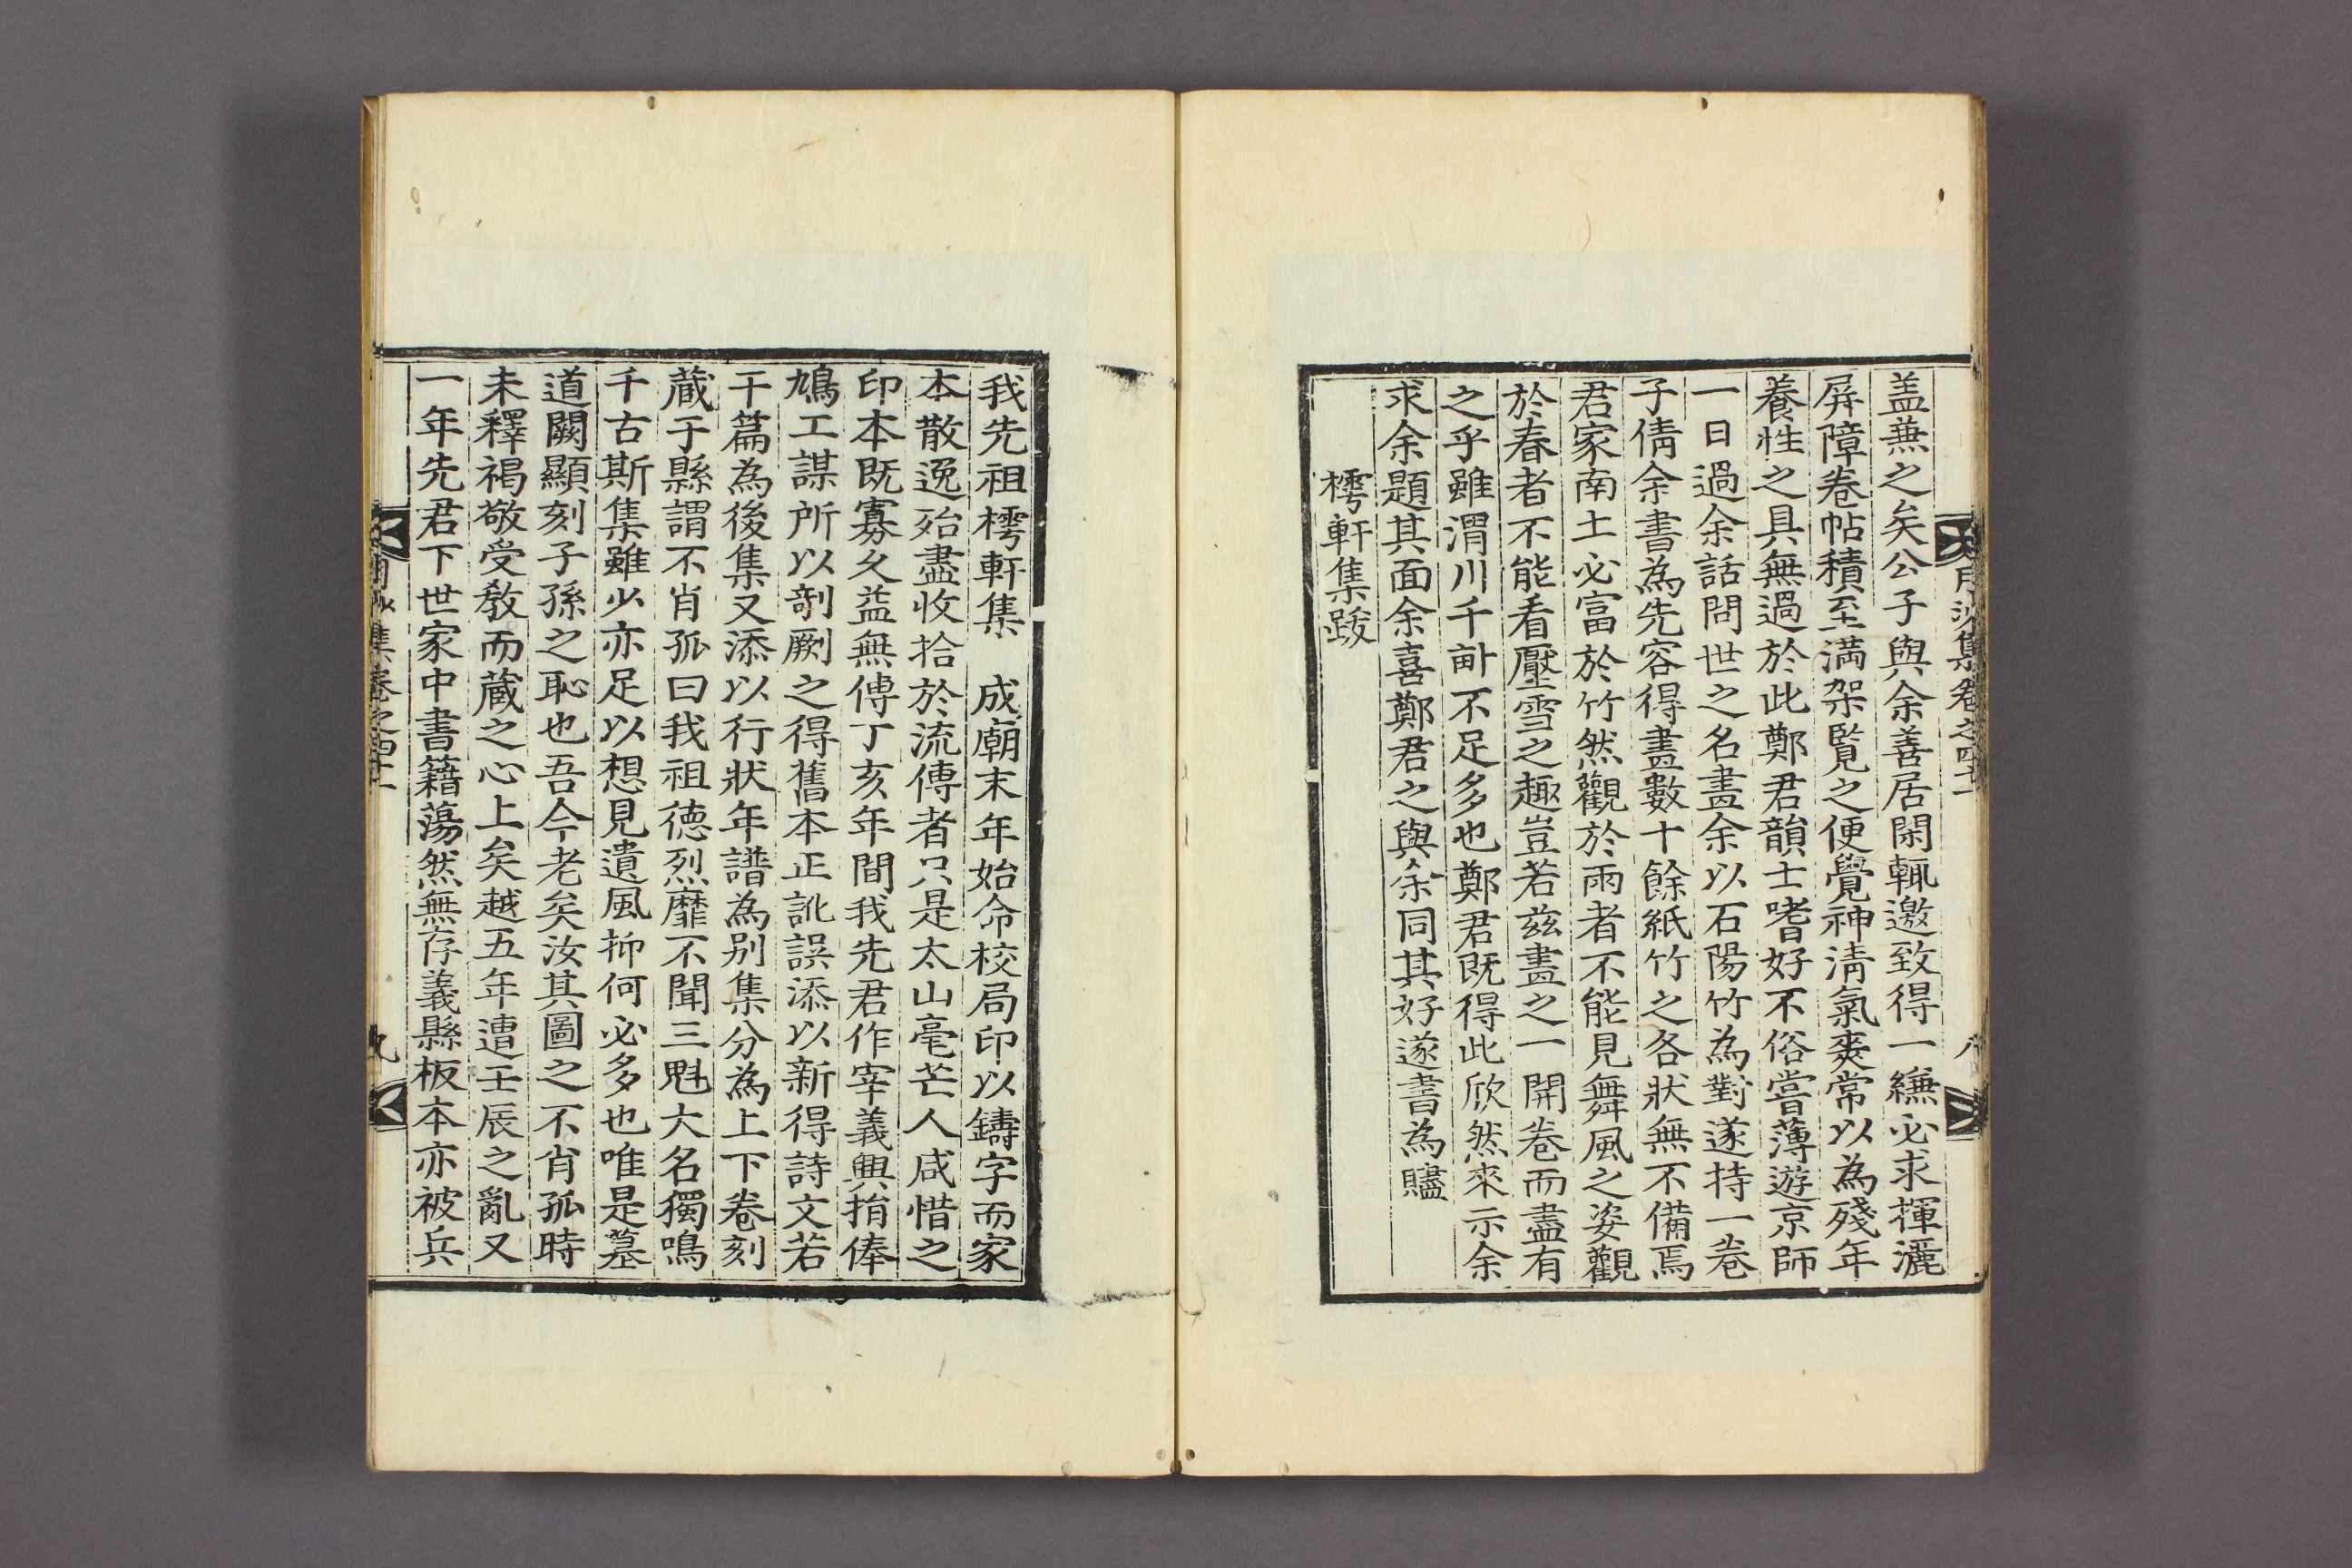 月沙集卷之四十一
八
盖兼之矣公子與余善居閑輒邀致得一縑必求揮灑
屏障卷帖積至滿架覽之便覺神清氣爽常以為殘年
養性之具無過於此鄭君韻士嗜好不俗嘗薄遊京師
一日過余話問世之名畫余以石陽竹為對遂持一卷
子倩余書為先容得畫數十餘紙竹之各狀無不備焉
君家南土必富於竹然觀於雨者不能見舞風之姿觀
於春者不能看壓雪之趣豈若茲畫之一開卷而盡有
之乎雖渭川千畝不足多也鄭君既得此欣然來示余
求余題其面余喜鄭君之與余同其好遂書為贐
樗軒集跋
我先祖樗軒集 成廟末年始命校局印以鑄字而家
本散逸殆盡收拾於流傳者只是太山毫芒人咸惜之
印本既寡久益無傳丁亥年間我先君作宰義興捐俸
鳩工謀所以剞劂之得舊本正訛誤添以新得詩文若
干篇為後集又添以行狀年譜為別集分為上下卷刻
藏于縣謂不肖孤曰我祖德烈靡不聞三魁大名獨鳴
千古斯集雖少亦足以想見遺風抑何必多也唯是墓
道闕顯刻子孫之恥也吾今老矣汝其圖之不肖孤時
未釋褐敬受教而藏之心上矣越五年遭壬辰之亂又
一年先君下世家中書籍蕩然無存義縣板本亦被兵
月沙集卷之四十一
九